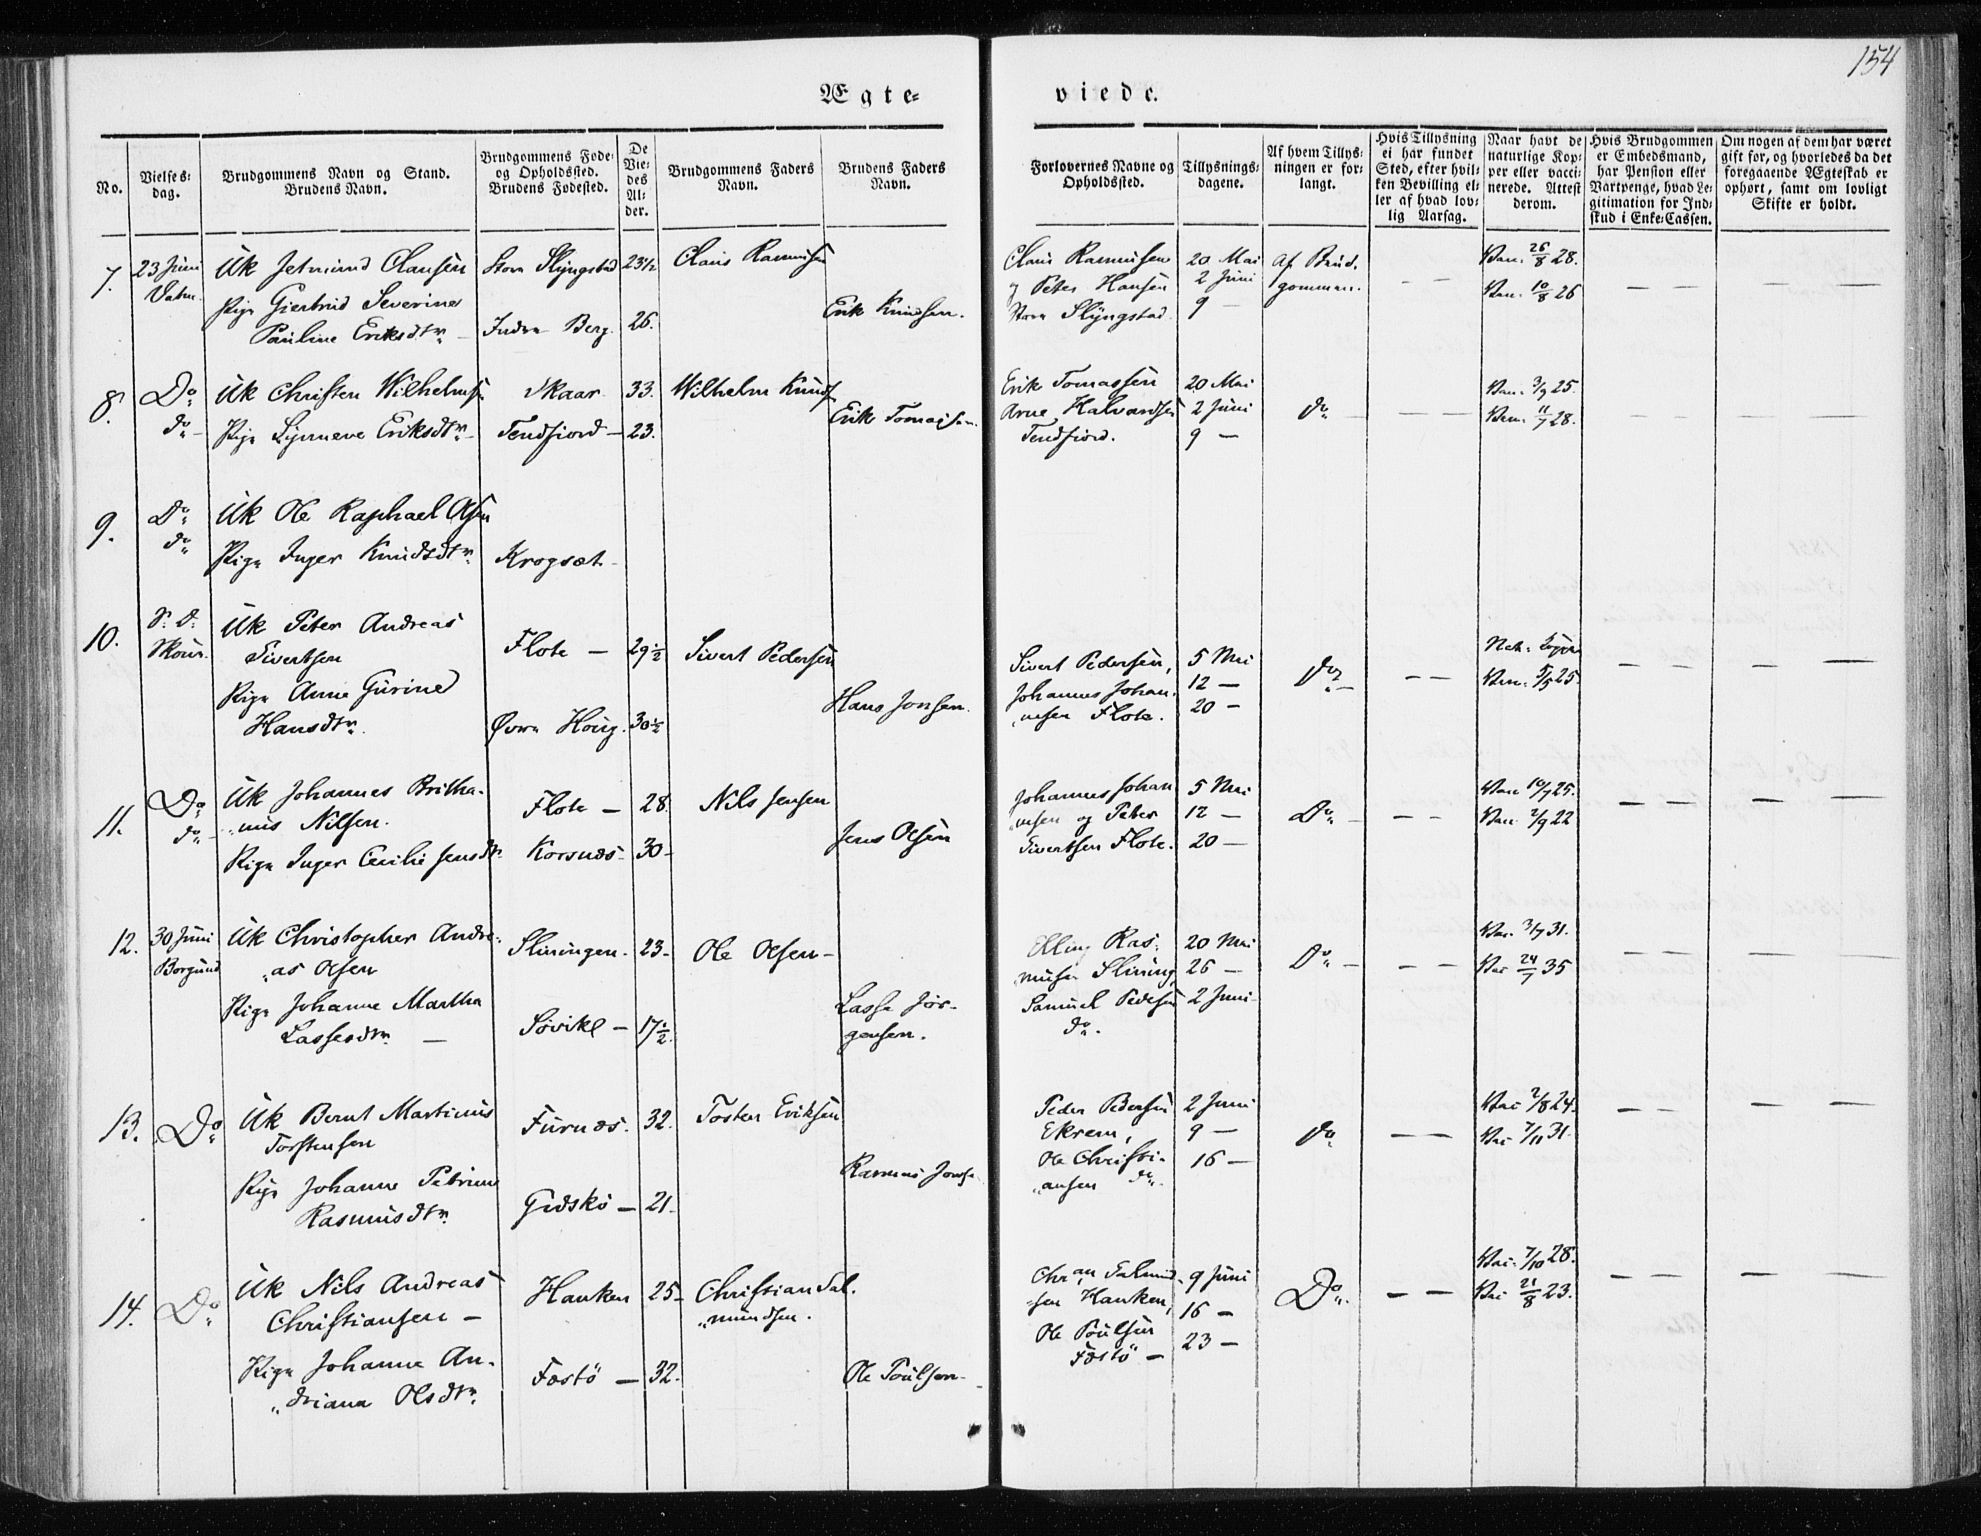 154
Ægte=
viede.
No.
Vielses=
dag.
Brudgommens Navn og Stand.
Brudens Navn.
Brudgommens Føde=
og Opholdssted.
Brudens Fødested.
De
Vie=
des
Al=
der.
Brudgommens Faders
Navn.
Brudens Faders
Navn.
Forlovernes Navne og
Opholdssted.
Tillysnings=
dagene.
Af hvem Tillys=
ningen er for=
langt.
Hvis Tillysning
ei har fundet
Sted, efter hvil=
ken Bevilling el=
ler af hvad lov=
lig Aarsag.
Naar havt de
naturlige Kop=
per eller vacci=
nerede. Attest
derom.
Hvis Brudgommen
er Embedsmand,
har Pension eller
Vartpenge, hvad Le=
gitimation for Ind=
skud i Enke=Cassen.
Om nogen af dem har været
gift før, og hvorledes da det
foregaaende Ægteskab er
ophørt, samt om lovligt
Skifte er holdt.
7.
23 Juni
Vatn.
Uk Jetmund Clausen
Pige Giertrud Severine
Pauline Eriksdtr
Store Slyngstad
Indre Berg
23½
26.
Claus Rasmusen
Erik Knudsen.
Claus Rasmusen
og Peter Hansen
Store Slyngstad
20 Mai
2 Juni
9 —
Af Brud.
gommen.
Vac. 26/8 28.
Vac. 10/8 26
8.
Do
do
Uk Christen Wilhelmsen
Pige Synneve Eriksdtr
Skaar
Tendfiord —
33.
23.
Wilhelm Knuds
Erik Tomassen
Erik Tomassen
Arne Halvardsen
Tendfiord.
20 Mai
2 Juni
9 —
do
Vac. 3/9 25.
Vac. 11/7 28.
9.
Do
do
Uk Ole Raphael Olsen
Pige Inger Knudsdtr
Krogsæt
10.
S. D.
Skour.
Uk Peter Andreas
Sivertsen
Pige Anne Gurine
Hansdtr
Flote —
Øvre Houg.
29½
30½
Sivert Pedersen
Hans Jonsen.
Sivert Pedersen,
Johannes Johan
"nesen Flote.
5 Mai
12 —
20 —
do
Vac. 5/5 25
11.
Do
do
Uk Johannes Britha-
"nus Nilsen.
Pige Inger Cecilie Jensdtr
Flote —
Korsnæs
28.
30
Nils Jensen
Jens Olsen
Johannes Johan
"nesen og Peter
Sivertsen Flote.
5 Mai
12 —
20 —
Do
Vac 10/7 25.
Vac. 2/9 22
12.
30 Juni
Borgund
Uk Christopher Andre-
"as Olsen
Pige Johanne Martha
Lassesdtr —
Sliningen.
Søvikl —
23
17½
Ole Olsen
Lasse Jør-
gensen.
Elling Ras-
musen Slining,
Samuel Pedersen
do.
20 Mai
26 —
2 Juni
Do
Vac. 3/7 31.
Vac 24/7 35
13.
Do
Uk Bernt Martinus
Torstensen
Pige Johanne Petrine
Rasmusdtr
Furnæs.
Gidskø —
32.
21.
Tosten Eriksen
Rasmus Jons
Peder Pedersen
Ekrem,
Ole Christi-
"ansen do
2 Juni
9 —
16 —
do
Vac 2/8 24.
Vac 7/11 31.
14.
Do
Uk Nils Andreas
Christiansen —
Pige Johanne An-
"driana Olsdtr
Hanken
Fæstø —
25
32.
Christian Sal.
"mundsen.
Ole Poulsen
Chran Salmund-
"sen Hanken,
Ole Poulsen
Fæstø —
9 Juni
16 —
23 —
Do
Vac. 7/10 28.
Vac 21/8 23.